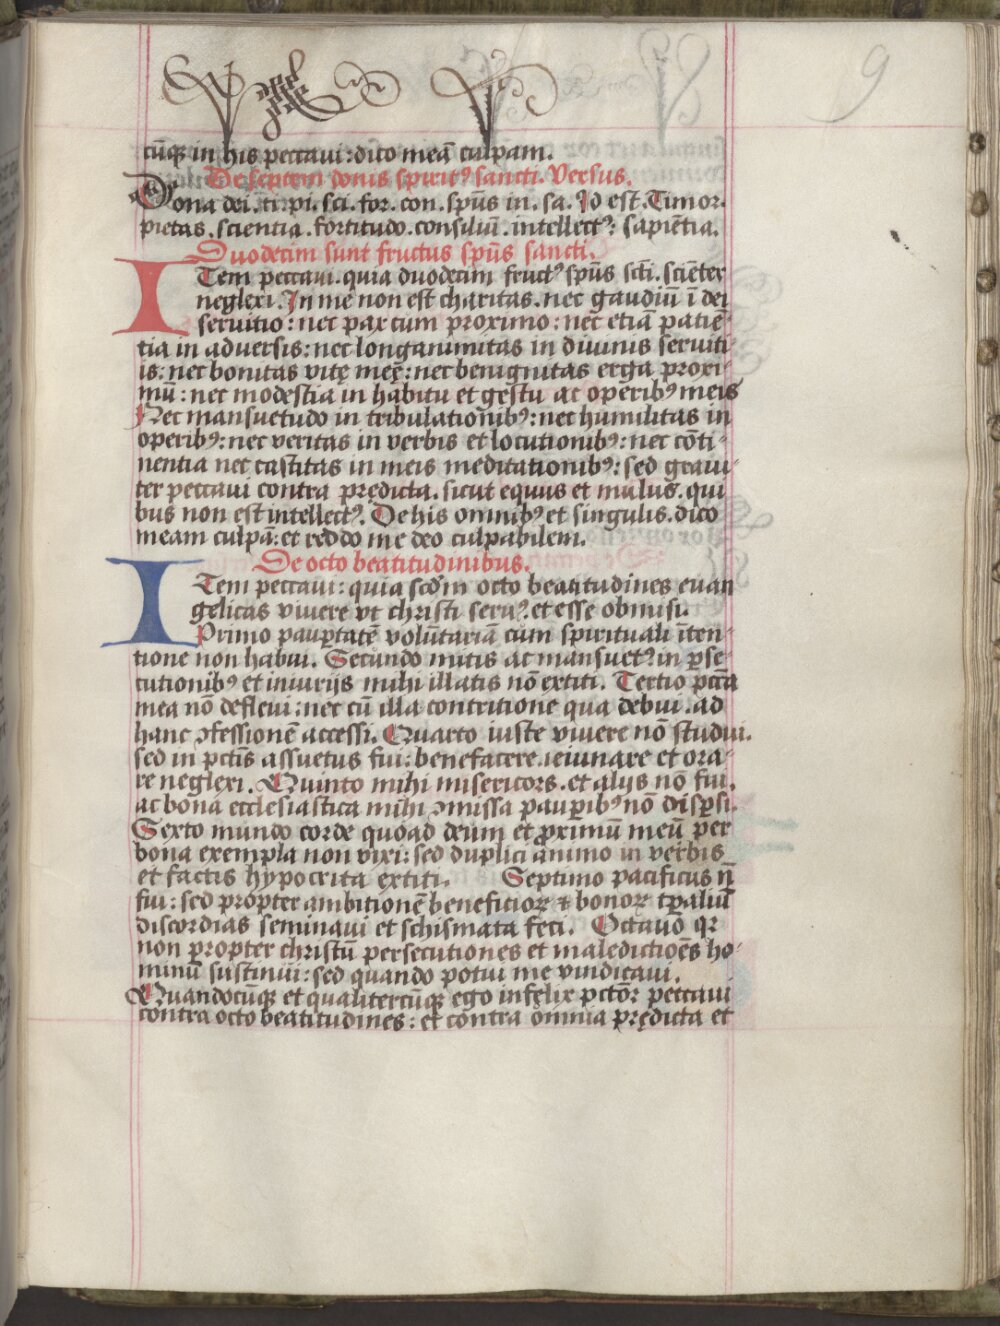 9
cūqꝫ in his peccaui: dico meā culpam.
De septem donis spiritꝰ sancti. Versus.
Dona dei. ti. pi. sci. for. con. spūs in. sa. Id est. Timor.
pietas. scientia. fortitudo. consiliū. intellectꝰ: sapiētia.
Duodecim sunt fructus spūs sancti.
ITem peccaui. quia duodecim fructꝰ spūs scti. sciēter
neglexi. In me non est charitas. nec gaudiū ī dei
seruitio: nec pax cum proximo: nec etiā patiē-
tia in aduersis: nec longanimitas in diuinis seruiti-
is: nec bonitas vitę meę: nec benignitas erga proxi-
mū: nec modestia in habitu et gestu ac operibꝰ meis
Nec mansuetudo in tribulationibꝰ: nec humilitas in
operibꝰ: nec veritas in verbis et locutionibꝰ: nec cōti-
nentia nec castitas in meis meditationibꝰ: sed graui-
ter peccaui contra prędicta. sicut equus et mulus. qui
bus non est intellectꝰ. De his omnibꝰ et singulis. dico
meam culpā: et reddo me deo culpabilem.
De octo beatitudinibus.
ITem peccaui: quia scd̄m octo beatitudines euan
gelicas viuere vt christi seruꝰ. et esse obmisi.
Primo pauꝑtatē volūtariā cum spirituali īten-
tione non habui. Secundo mitis ac mansuetꝰ in ꝑse-
cutionibꝰ et iniurijs mihi illatis nō extiti. Tertio pctā
mea nō defleui: nec cū illa contritione qua debui. ad
hanc ꝯfessionē accessi. Quarto iuste viuere nō studui.
sed in pctīs assuetus fui: benefacere. ieiunare et ora-
re neglexi. Quinto mihi misericors. et alijs nō fui.
ac bona ecclesiastica mihi ꝯmissa pauꝑibꝰ nō disꝑsi.
Sexto mundo corde quoad deum et ꝓximū meū per
bona exempla non vixi: sed duplici animo in verbis
et factis hypocrita extiti. Septimo pacificus n̄
fui: sed propter ambitionē beneficioꝝ ⁊ bonoꝝ tꝑaliū
discordias seminaui et schismata feci. Octauo qꝛ
non propter christū persecutiones et maledictiōēs ho-
minū sustinui: sed quando potui me vindicaui.
Quandocūqꝫ et qualitercūqꝫ ego infelix pctōr peccaui
contra octo beatitudines: et contra omnia prędicta et